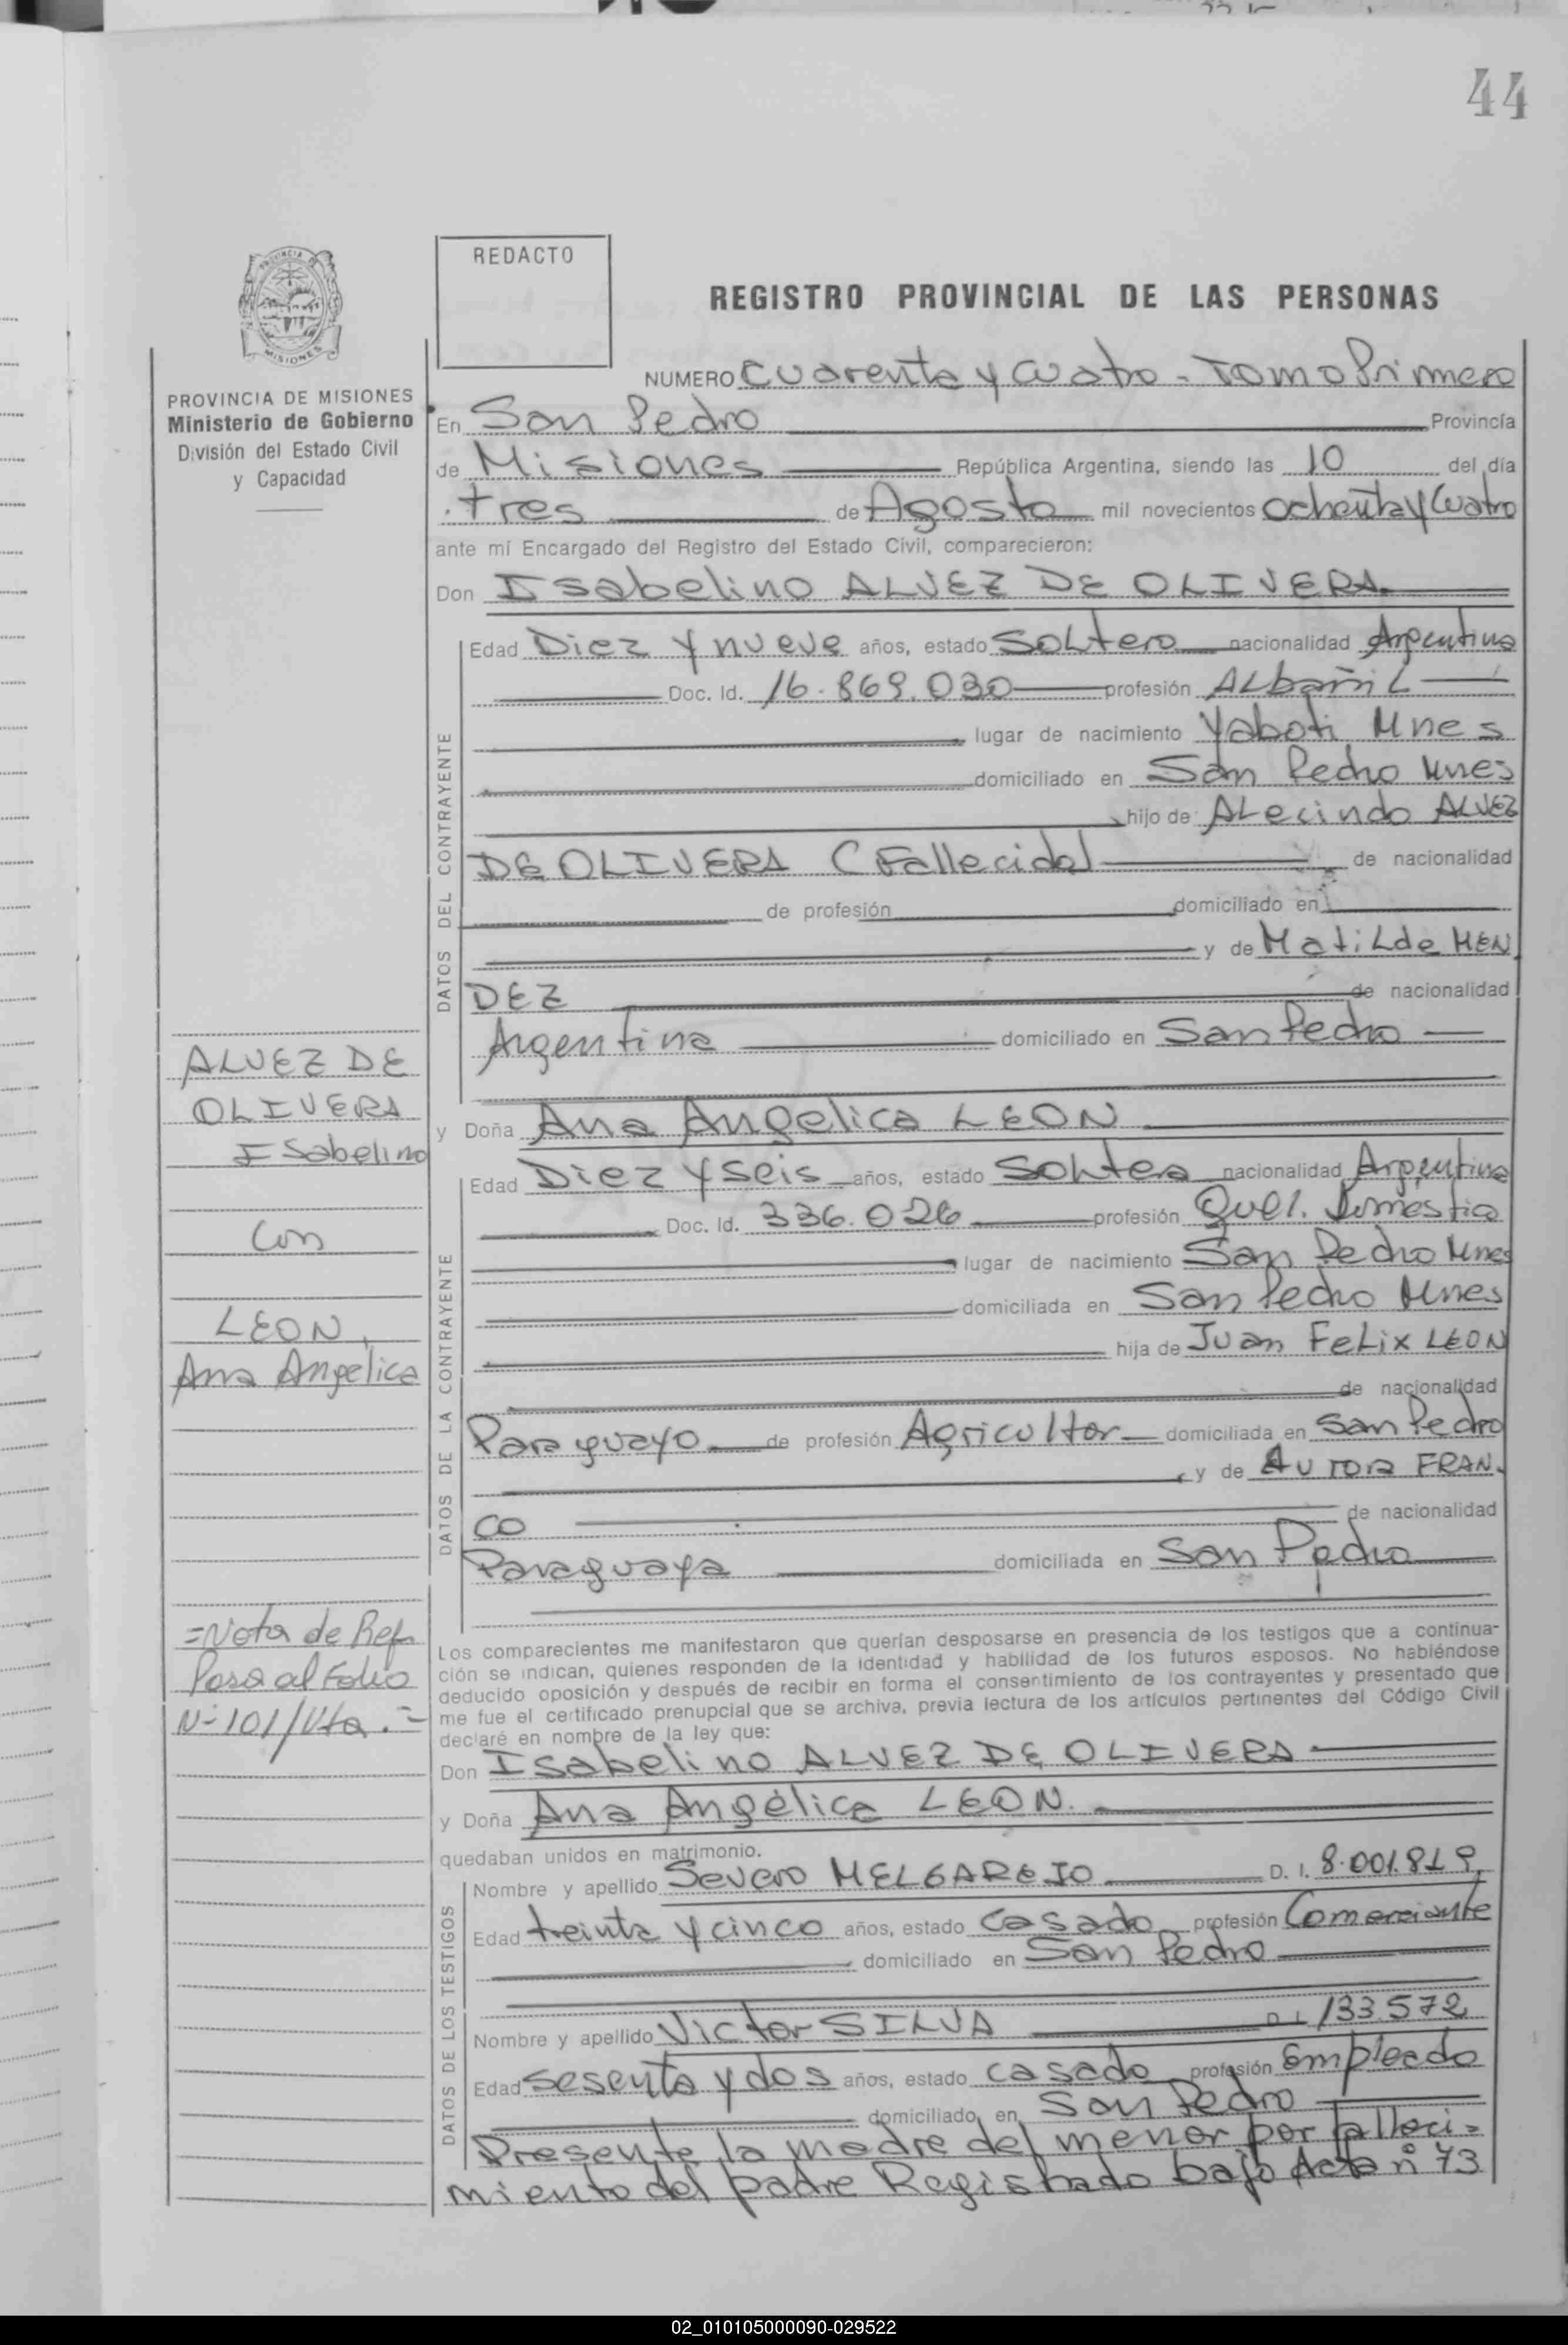 44
REDACTO
REGISTRO PROVINCIAL DE LAS PERSONAS
PROVINCIA DE MISIONES
Ministerio de Gobierno
División del Estado Civil
y Capacidad
NUMERO Cuarenta y Cuatro - Tomo Primero
En San Pedro Provincia
de Misiones República Argentina, siendo las 10 del día
tres de Agosto mil novecientos ochenta y Cuatro
ante mí Encargado del Registro del Estado Civil, comparecieron:
Don Isabelino ALVEZ DE OLIVERA
DATOS DEL CONTRAYENTE
Edad Diez y nueve años, estado Soltero nacionalidad Argentina
Doc. Id. 16.869.030 profesión Albañil
lugar de nacimiento Yaboti Mnes
domiciliado en San Pedro Mnes
hijo de Alecindo ALVEZ
DE OLIVERA (Fallecido) de nacionalidad
de profesión domiciliado en
y de Matilde MEN
DEZ de nacionalidad
Argentina domiciliado en San Pedro
ALVEZ DE
OLIVERA
Isabelino
Con
LEON,
Ana Angélica
y Doña Ana Angelica LEON
DATOS DE LA CONTRAYENTE
Edad Diez y seis años, estado Soltera nacionalidad Argentina
Doc. Id. 336.026 profesión Domestica
lugar de nacimiento San Pedro Mnes
domiciliada en San Pedro Mnes
hija de Juan Felix LEON
de nacionalidad
Paraguayo de profesión Agricultor domiciliada en San Pedro
y de FRAN-
CO de nacionalidad
Paraguaya domiciliada en San Pedro
=Nota de Ref.
Pasa al Folio
Nº 101/Vta.=
Los comparecientes me manifestaron que querían desposarse en presencia de los testigos que a continua-
ción se indican, quienes responden de la identidad y habilidad de los futuros esposos. No habiéndose
deducido oposición y después de recibir en forma el consentimiento de los contrayentes y presentado que
me fue el certificado prenupcial que se archiva, previa lectura de los artículos pertinentes del Código Civil
declaré en nombre de la ley que:
Don Isabelino ALVEZ DE OLIVERA
y Doña Ana Angélica LEON.
quedaban unidos en matrimonio.
DATOS DE LOS TESTIGOS
Nombre y apellido Severo MELGAREJO D. I. 8.001.819
Edad treinta y cinco años, estado casado profesión Comerciante
domiciliado en San Pedro
Nombre y apellido Victor SILVA D. I. 133.572
Edad sesenta y dos años, estado casado profesión Empleado
domiciliado en San Pedro
Presente la madre del menor por falleci=
miento del padre Registrado bajo Acta nº 73
02_010105000090-029522